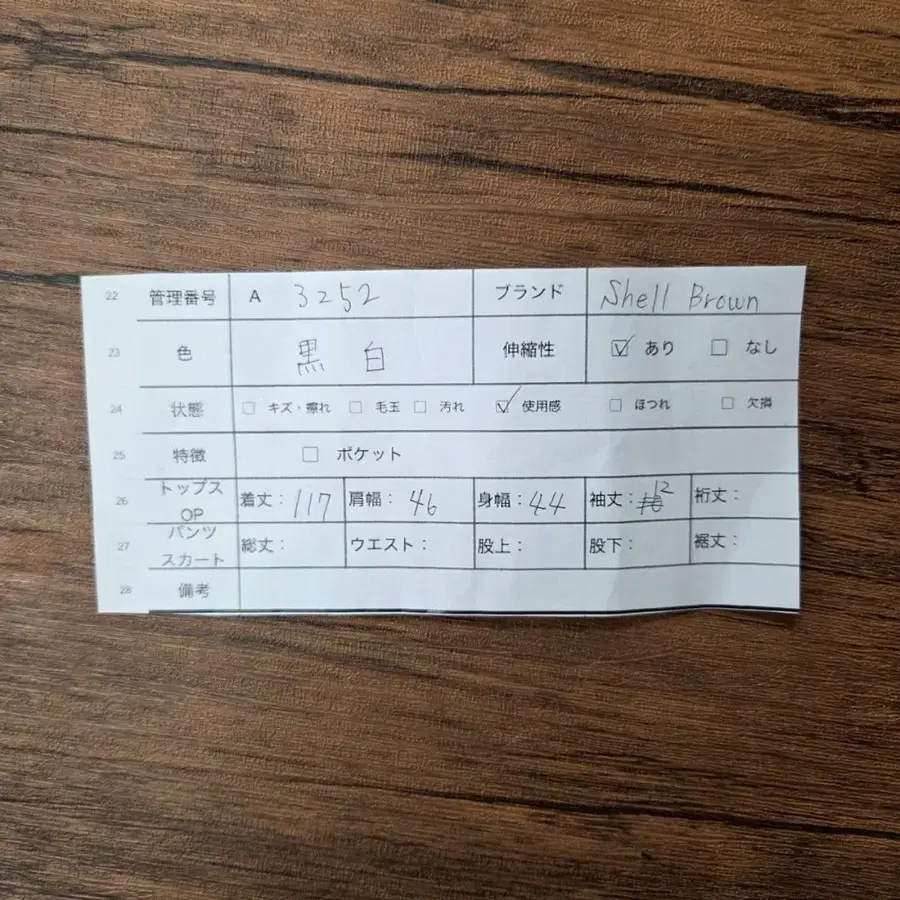 22 管理番号 A 3252 ブランド Shell Brown
23 色 黒 白 伸縮性 ☑ あり ☐ なし
24 状態 ☐ キズ・擦れ ☐ 毛玉 ☐ 汚れ ☑ 使用感 ☐ ほつれ ☐ 欠損
25 特徴 ☐ ポケット
26 トップス OP 着丈：117 肩幅：46 身幅：44 袖丈：12 裄丈：
27 パンツ スカート 総丈： ウエスト： 股上： 股下： 裾丈：
28 備考